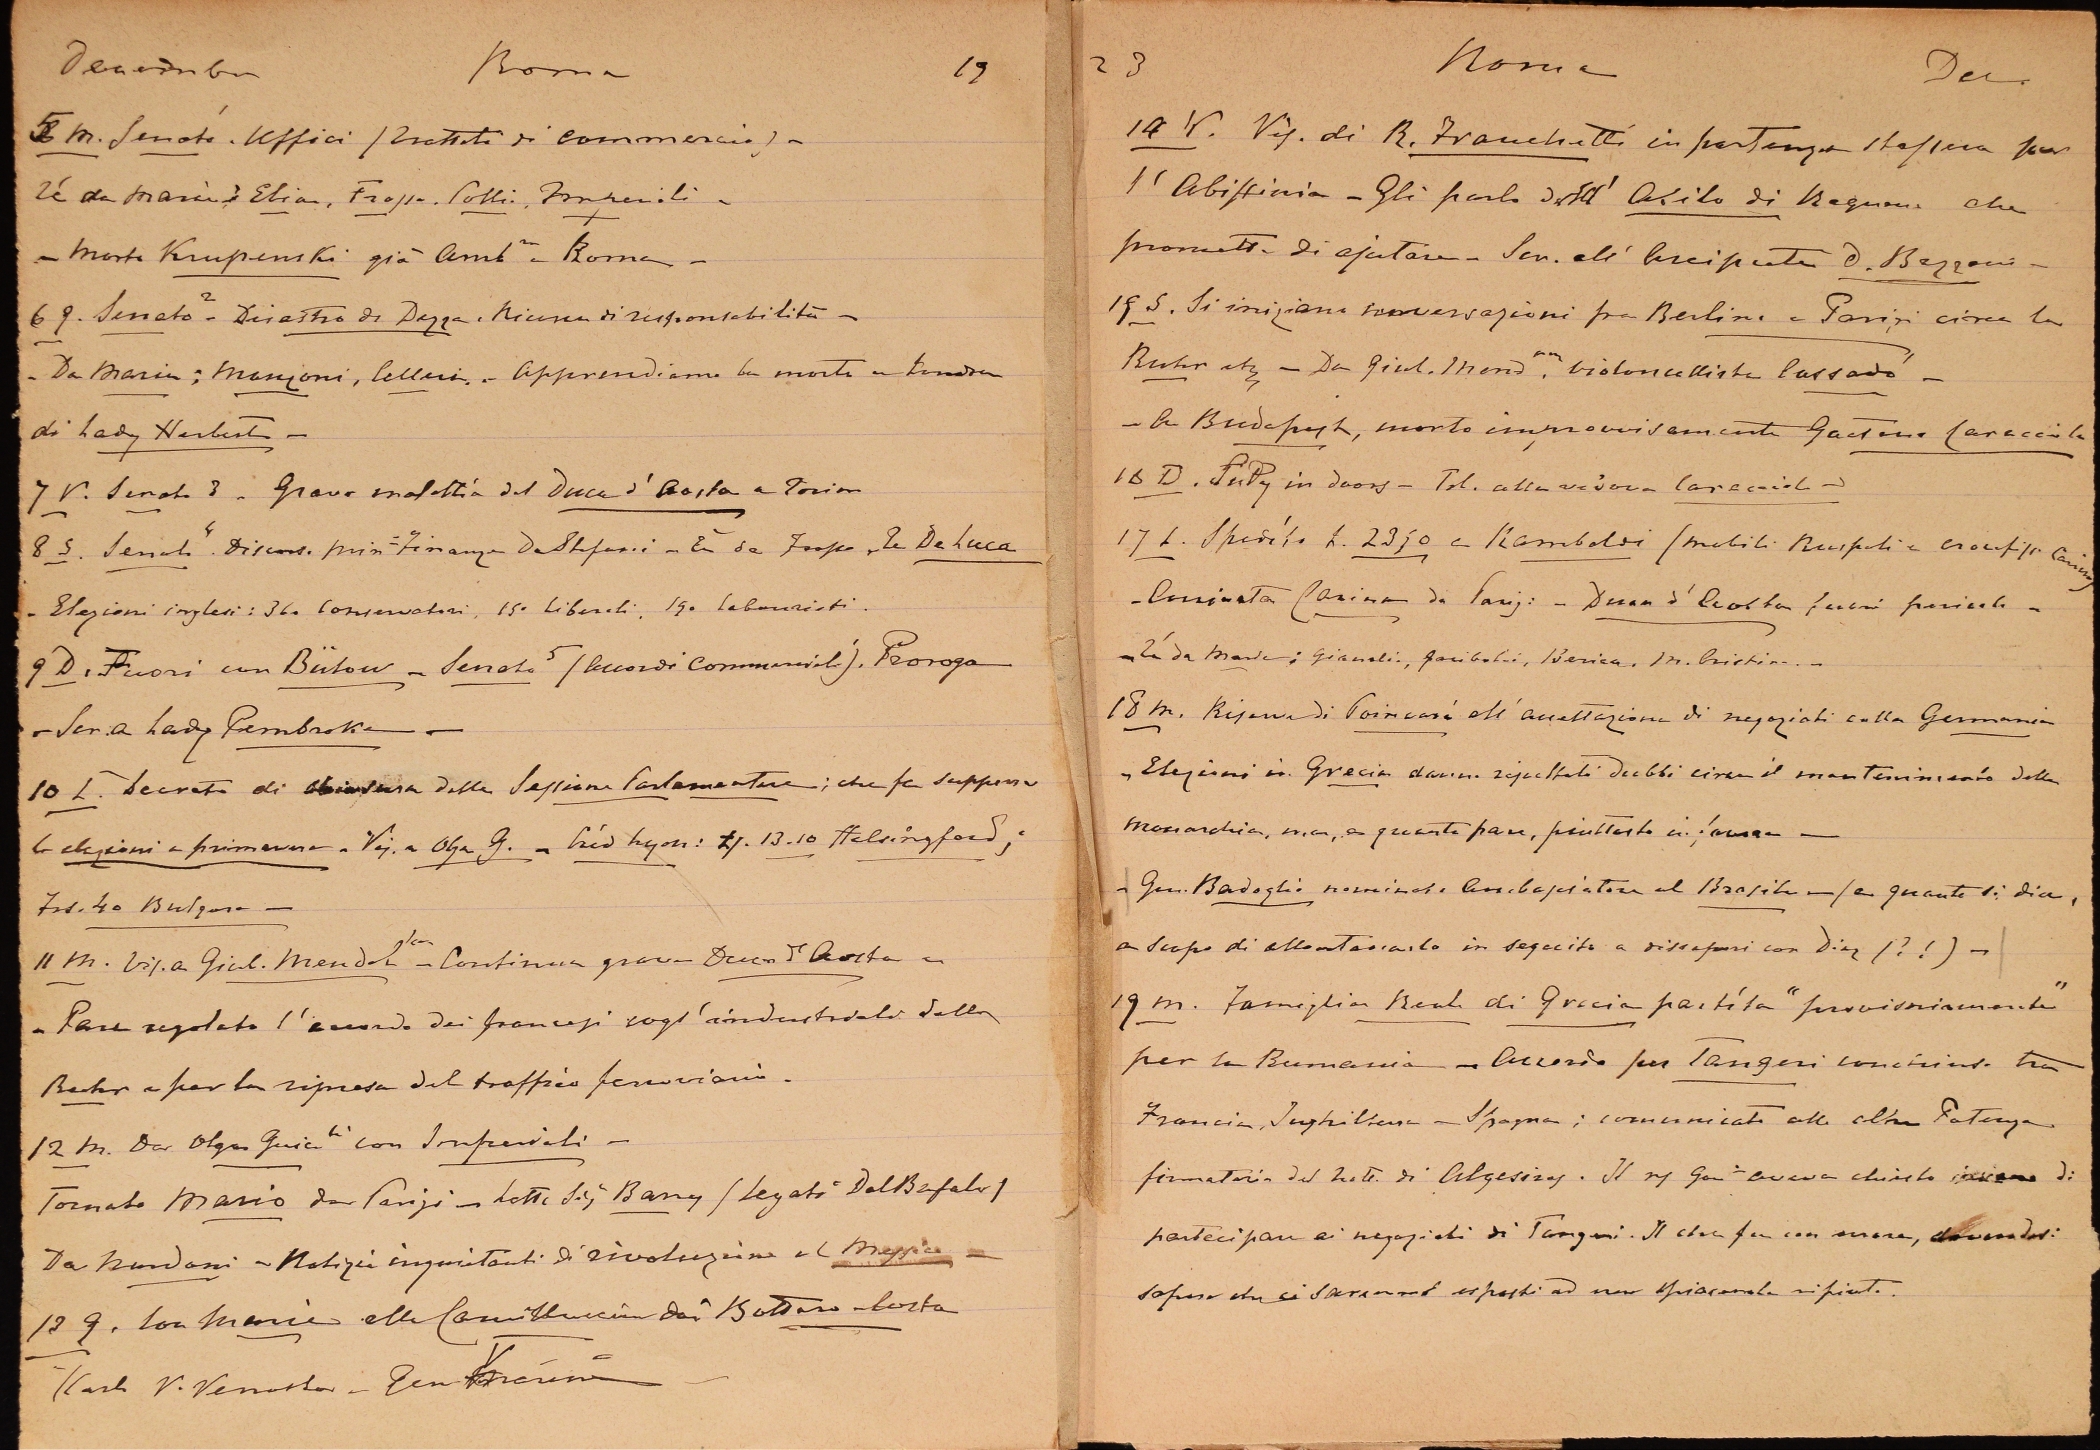 Decembre Roma 19
5 M. Senato. Uffici (Trattati di commercio) -
Té da Maria: Elia, Frasso, Imperiali -
- Morto Krupenski già Amb.re a Roma -
6 G. Senato 2 - Disastro di Dezzo. Ricerca di responsabilità -
- Da Maria: Manzoni, - Apprendiamo la morte a Londra
di Lady Herbert -
7 V. Senato 3 - Grave malattia del Duca d'Aosta a Torino
8 S. Senato 4. Discorso Min= Finanze De Stefani - Té da - Te De Luca
- Elezioni inglesi: 360 Conservatori, 150 Liberali, 190 laburisti.
9 D. Fuori con Bülow - Senato 5 (Accordi Commerciali). Proroga
- Scr. a Lady Pembroke -
10 L. Decreto di chiusura della Sessione Parlamentare; che fa supporre
le elezioni a primavera - Vis. a Olga G. - Créd Lyon: 13.10 Helsingfors;
40 Bulgare -
11 M. Vis. a Giul. Mendel - Continua grave Duca d'Aosta -
- Pare regolato l'accordo dei francesi cogl'industriali della
Ruhr e per la ripresa del traffico ferroviario.
12 M. Da Olga con Imperiali -
Tornato Mario da Parigi - Barry (Legato Del Bufalo)
Da - Notizie inquietanti di rivoluzione al Messico -
13 G. Con Maria alla Camilluccia dai Bottaro Costa
V. Venosta - Gen
23 Roma Dec.
14 V. Vis. di R. Franchetti in partenza stasera per
l'Abissinia - Gli parlo dell'Asilo di che
promette di ajutare - Scr. all'Arciprete D. Bezzoni -
15 S. Si iniziano conversazioni fra Berlino e Parigi circa la
Ruhr etc - Da Giul. Mend violoncellista Cassadó -
- A Budapest, morto improvvisamente Gaetano Caracciolo
16 D. in doors - Tel. alla vedova Caracciolo -
17 L. Spedito L. 2350 a Rambaldi (mobili Ruspoli e
- Carina da Parigi - Duca d'Aosta fuori pericolo -
- Té da Maria: M. Cristina -
18 M. Riserve di Poincaré all'accettazione di negoziati colla Germania
- Elezioni in Grecia danno risultati dubbi circa il mantenimento della
monarchia, ma, a quanto pare, piuttosto in favore -
- Gen. Badoglio nominato Ambasciatore al Brasile - (a quanto si dice,
a scopo di allontanarlo in seguito a dissapori con Diaz (?!) -
19 M. Famiglia Reale di Grecia partita "provvisoriamente"
per la Rumania - Accordo per Tangeri conchiuso tra
Francia, Inghilterra - Spagna; comunicato alle altre Potenze
firmatarie del tratt. di Algesiras. Il ns Gov= aveva chiesto invano di
partecipare ai negoziati di Tangeri. Il che fu un errore, dovendosi
sapere che ci saremmo esposti ad uno spiacevole rifiuto.